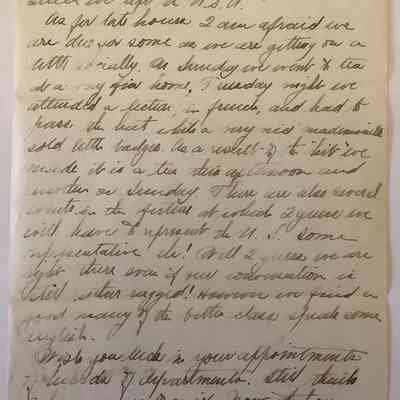 U.S.A.
As for late hours I am afraid we
are due for some as we are getting on a
little socially. On Sunday we went to tea
at a very fine home, Tuesday night we
attended a lecture, in french, and had to
pass the hat while a very nice mademoiselle
sold little badges. As a result of the "hit" we
made it is a tea this afternoon and
another on Sunday. There are also several
events in the future at which I guess we
will have to represent the U. S. some
representative eh! Well I guess we are
right there even if our conversation is
still rather ragged! However we find a
good many of the better class speak some
english.
Wish you luck in your appointments
of heads of departments. Still think